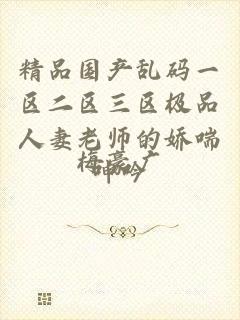 精品国产乱码一
区二区三区极品
人妻老师的娇喘
呻吟
梅豪广